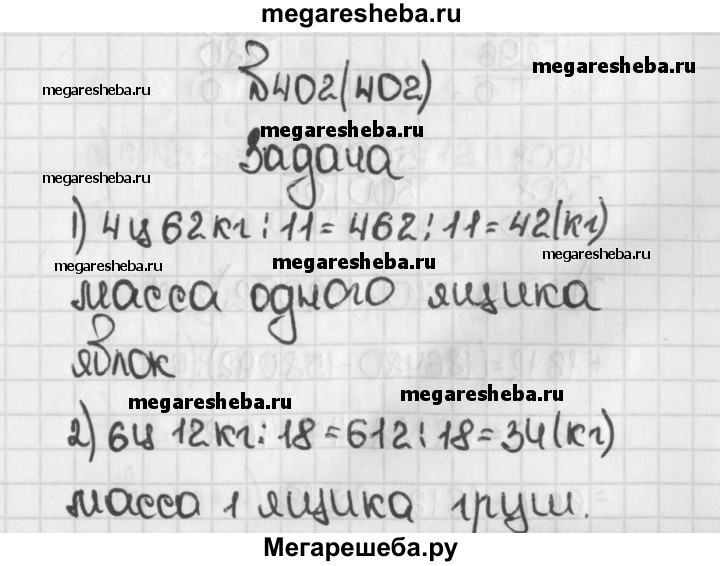 megaresheba.ru
№402(402)
megaresheba.ru
megaresheba.ru
megaresheba.ru
Задача
megaresheba.ru
1) 4ц 62кг : 11 = 462 : 11 = 42(кг)
megaresheba.ru
megaresheba.ru
megaresheba.ru
масса одного ящика
яблок
megaresheba.ru
megaresheba.ru
2) 6ц 12кг : 18 = 612 : 18 = 34(кг)
масса 1 ящика груш.
Мегарешеба.ру